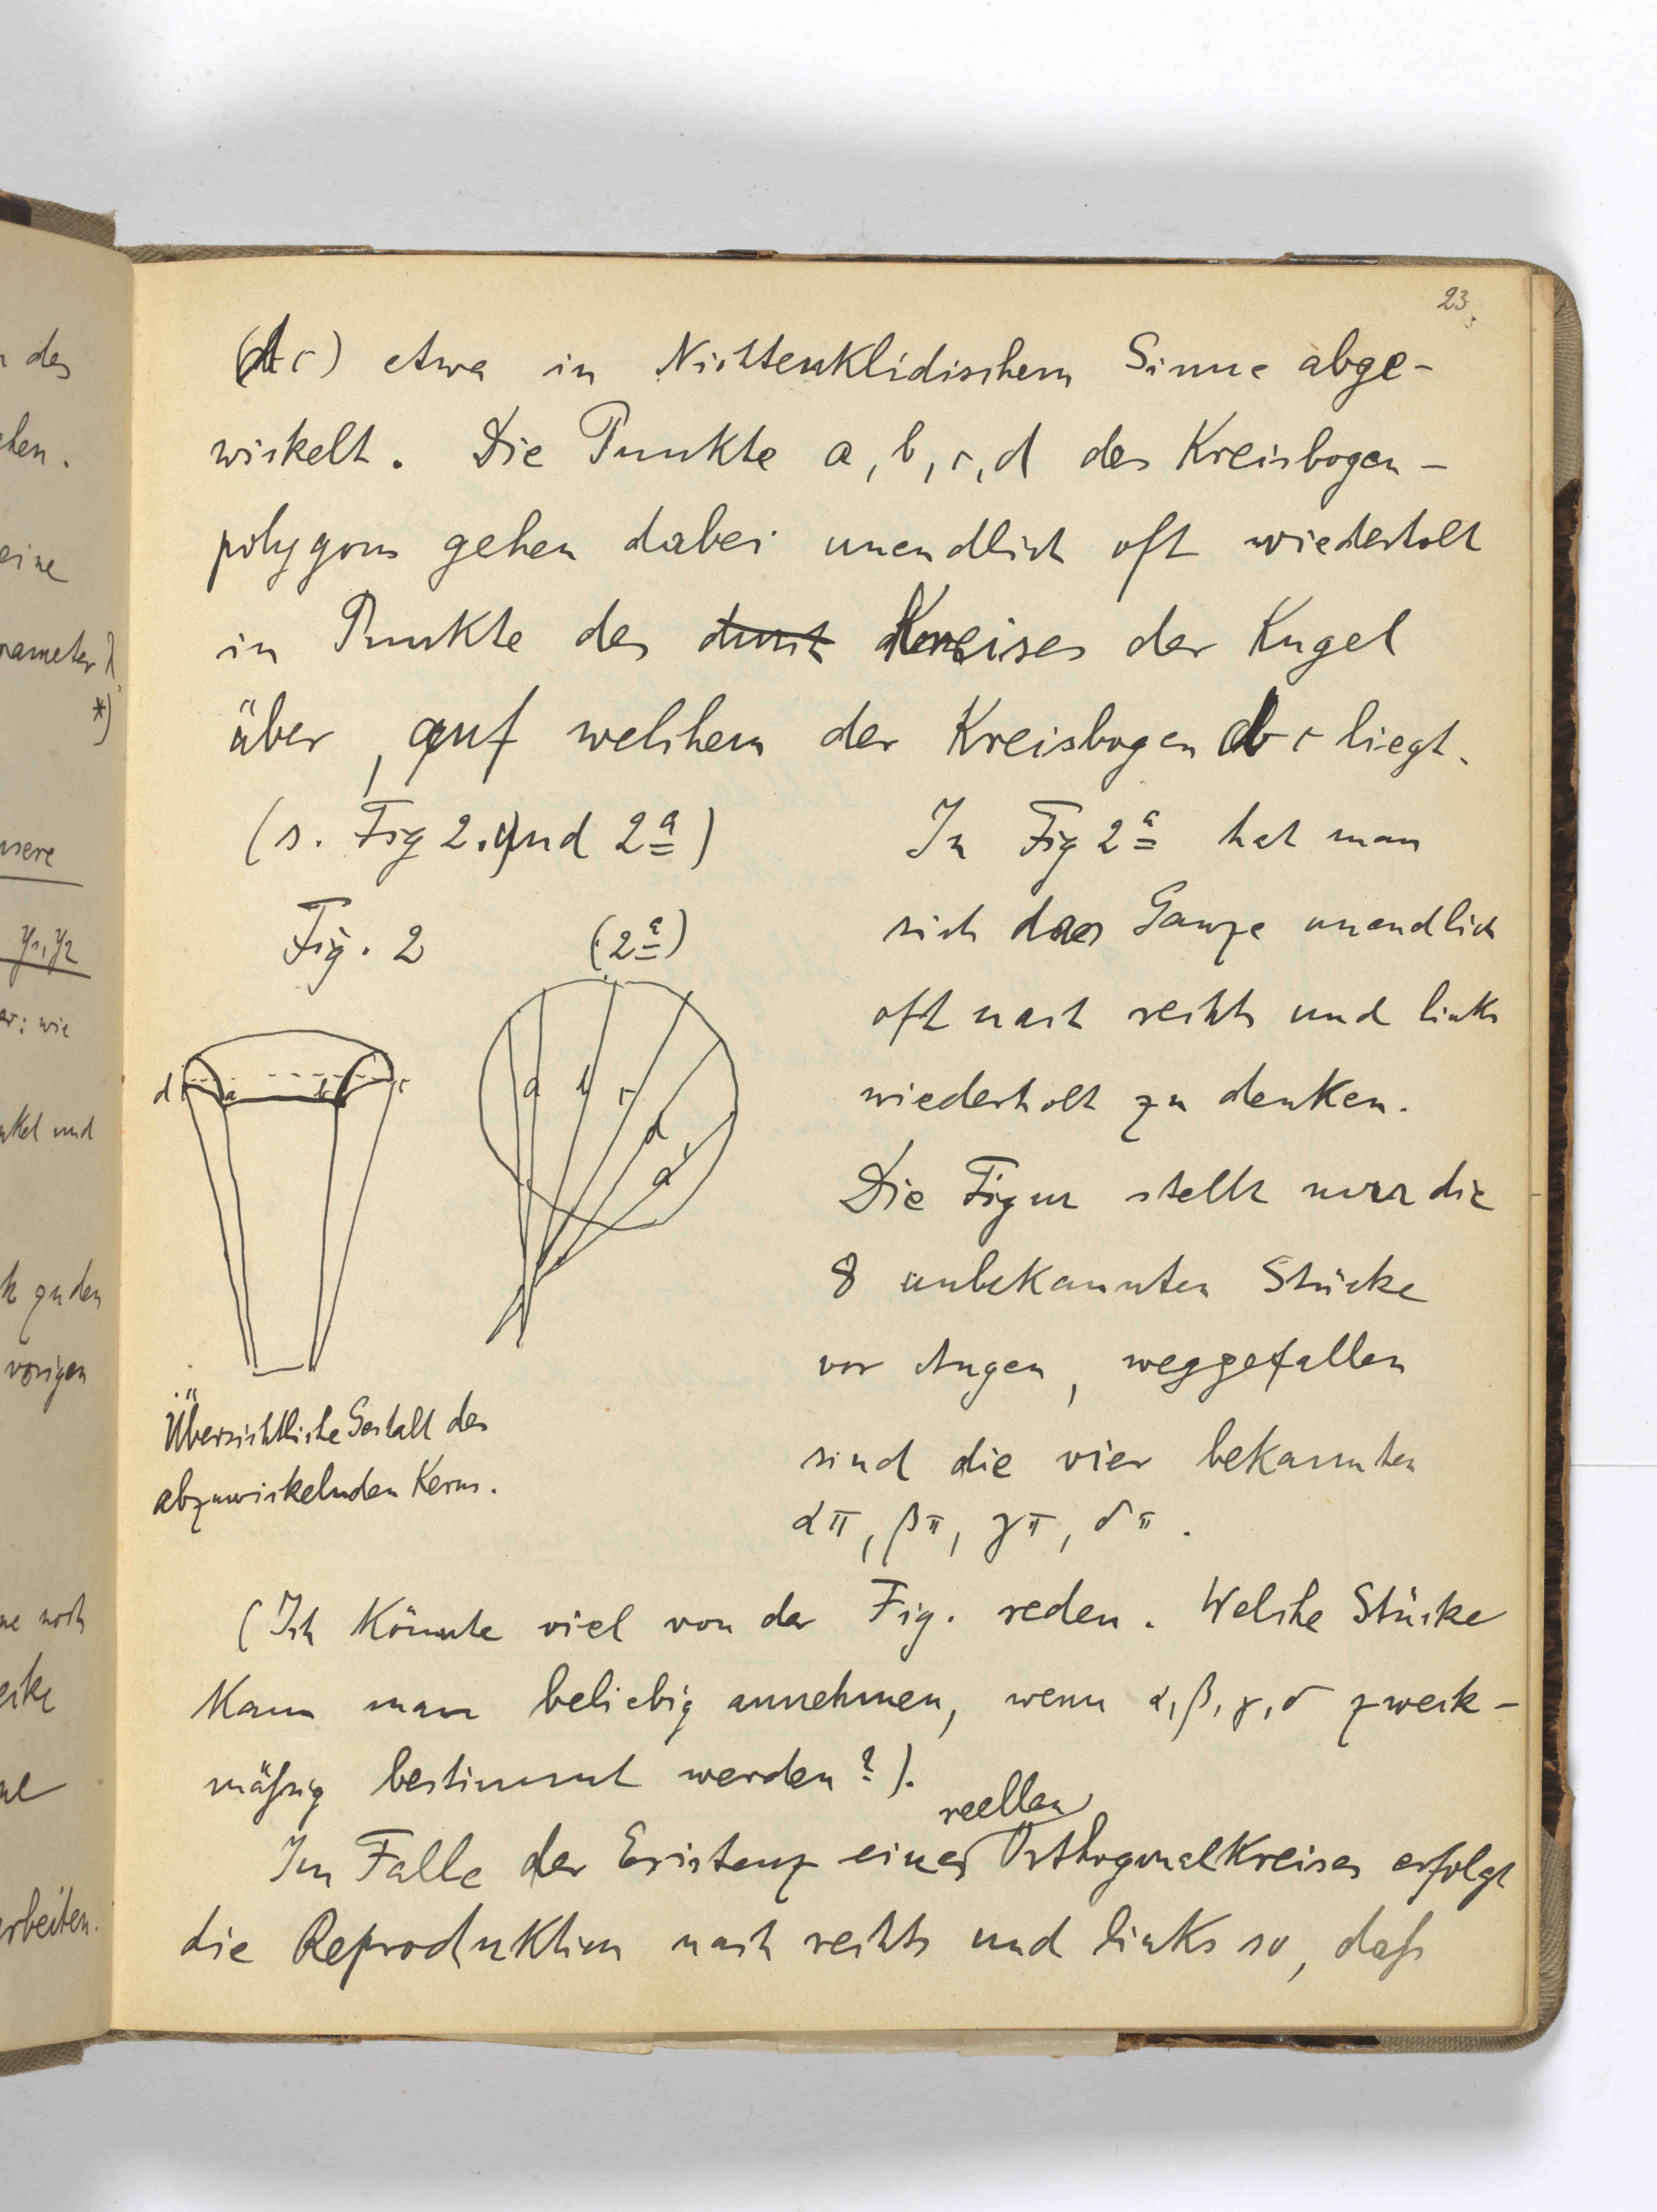 23.
(dc) etwa in Nichteuklidischem Sinne abge-
wickelt. Die Punkte a, b, c, d des Kreisbogen-
polygons gehen dabei unendlich oft wiederholt
in Punkte des durch Kreises der Kugel
über, auf welchem der Kreisbogen dc liegt.
(s. Fig 2. und 2a)
In Fig 2a hat man
sich das Ganze unendlich
oft nach rechts und links
wiederholt zu denken.
Die Figur stellt nur die
8 unbekannten Stücke
vor Augen, weggefallen
sind die vier bekannten
απ, βπ, γπ, δπ.
Fig. 2 (2a)
d a b c
a b c d a'
Übersichtliche Gestalt des
abzuwickelnden Kerns.
(Ich könnte viel von der Fig. reden. Welche Stücke
kann man beliebig annehmen, wenn α, β, γ, δ zweck-
mäßig bestimmt werden?).
reellen
Im Falle der Existenz eines Orthogonalkreises erfolgt
die Reproduktion nach rechts und links so, daß
des
eine
y1, y2
wie
und
vorigen
noch